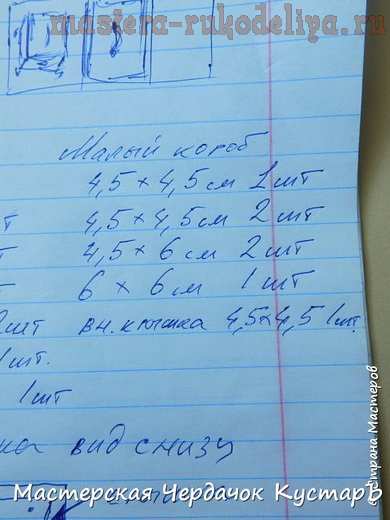 mastera-rukodeliya.ru
Малый короб
4,5 × 4,5 см 1 шт
4,5 × 4,5 см 2 шт
4,5 × 6 см 2 шт
6 × 6 см 1 шт
вн. крышка 4,5×4,5 1 шт.
шт
1 шт.
1 шт
вид снизу
Страна Мастеров
Мастерская Чердачок Кустарь